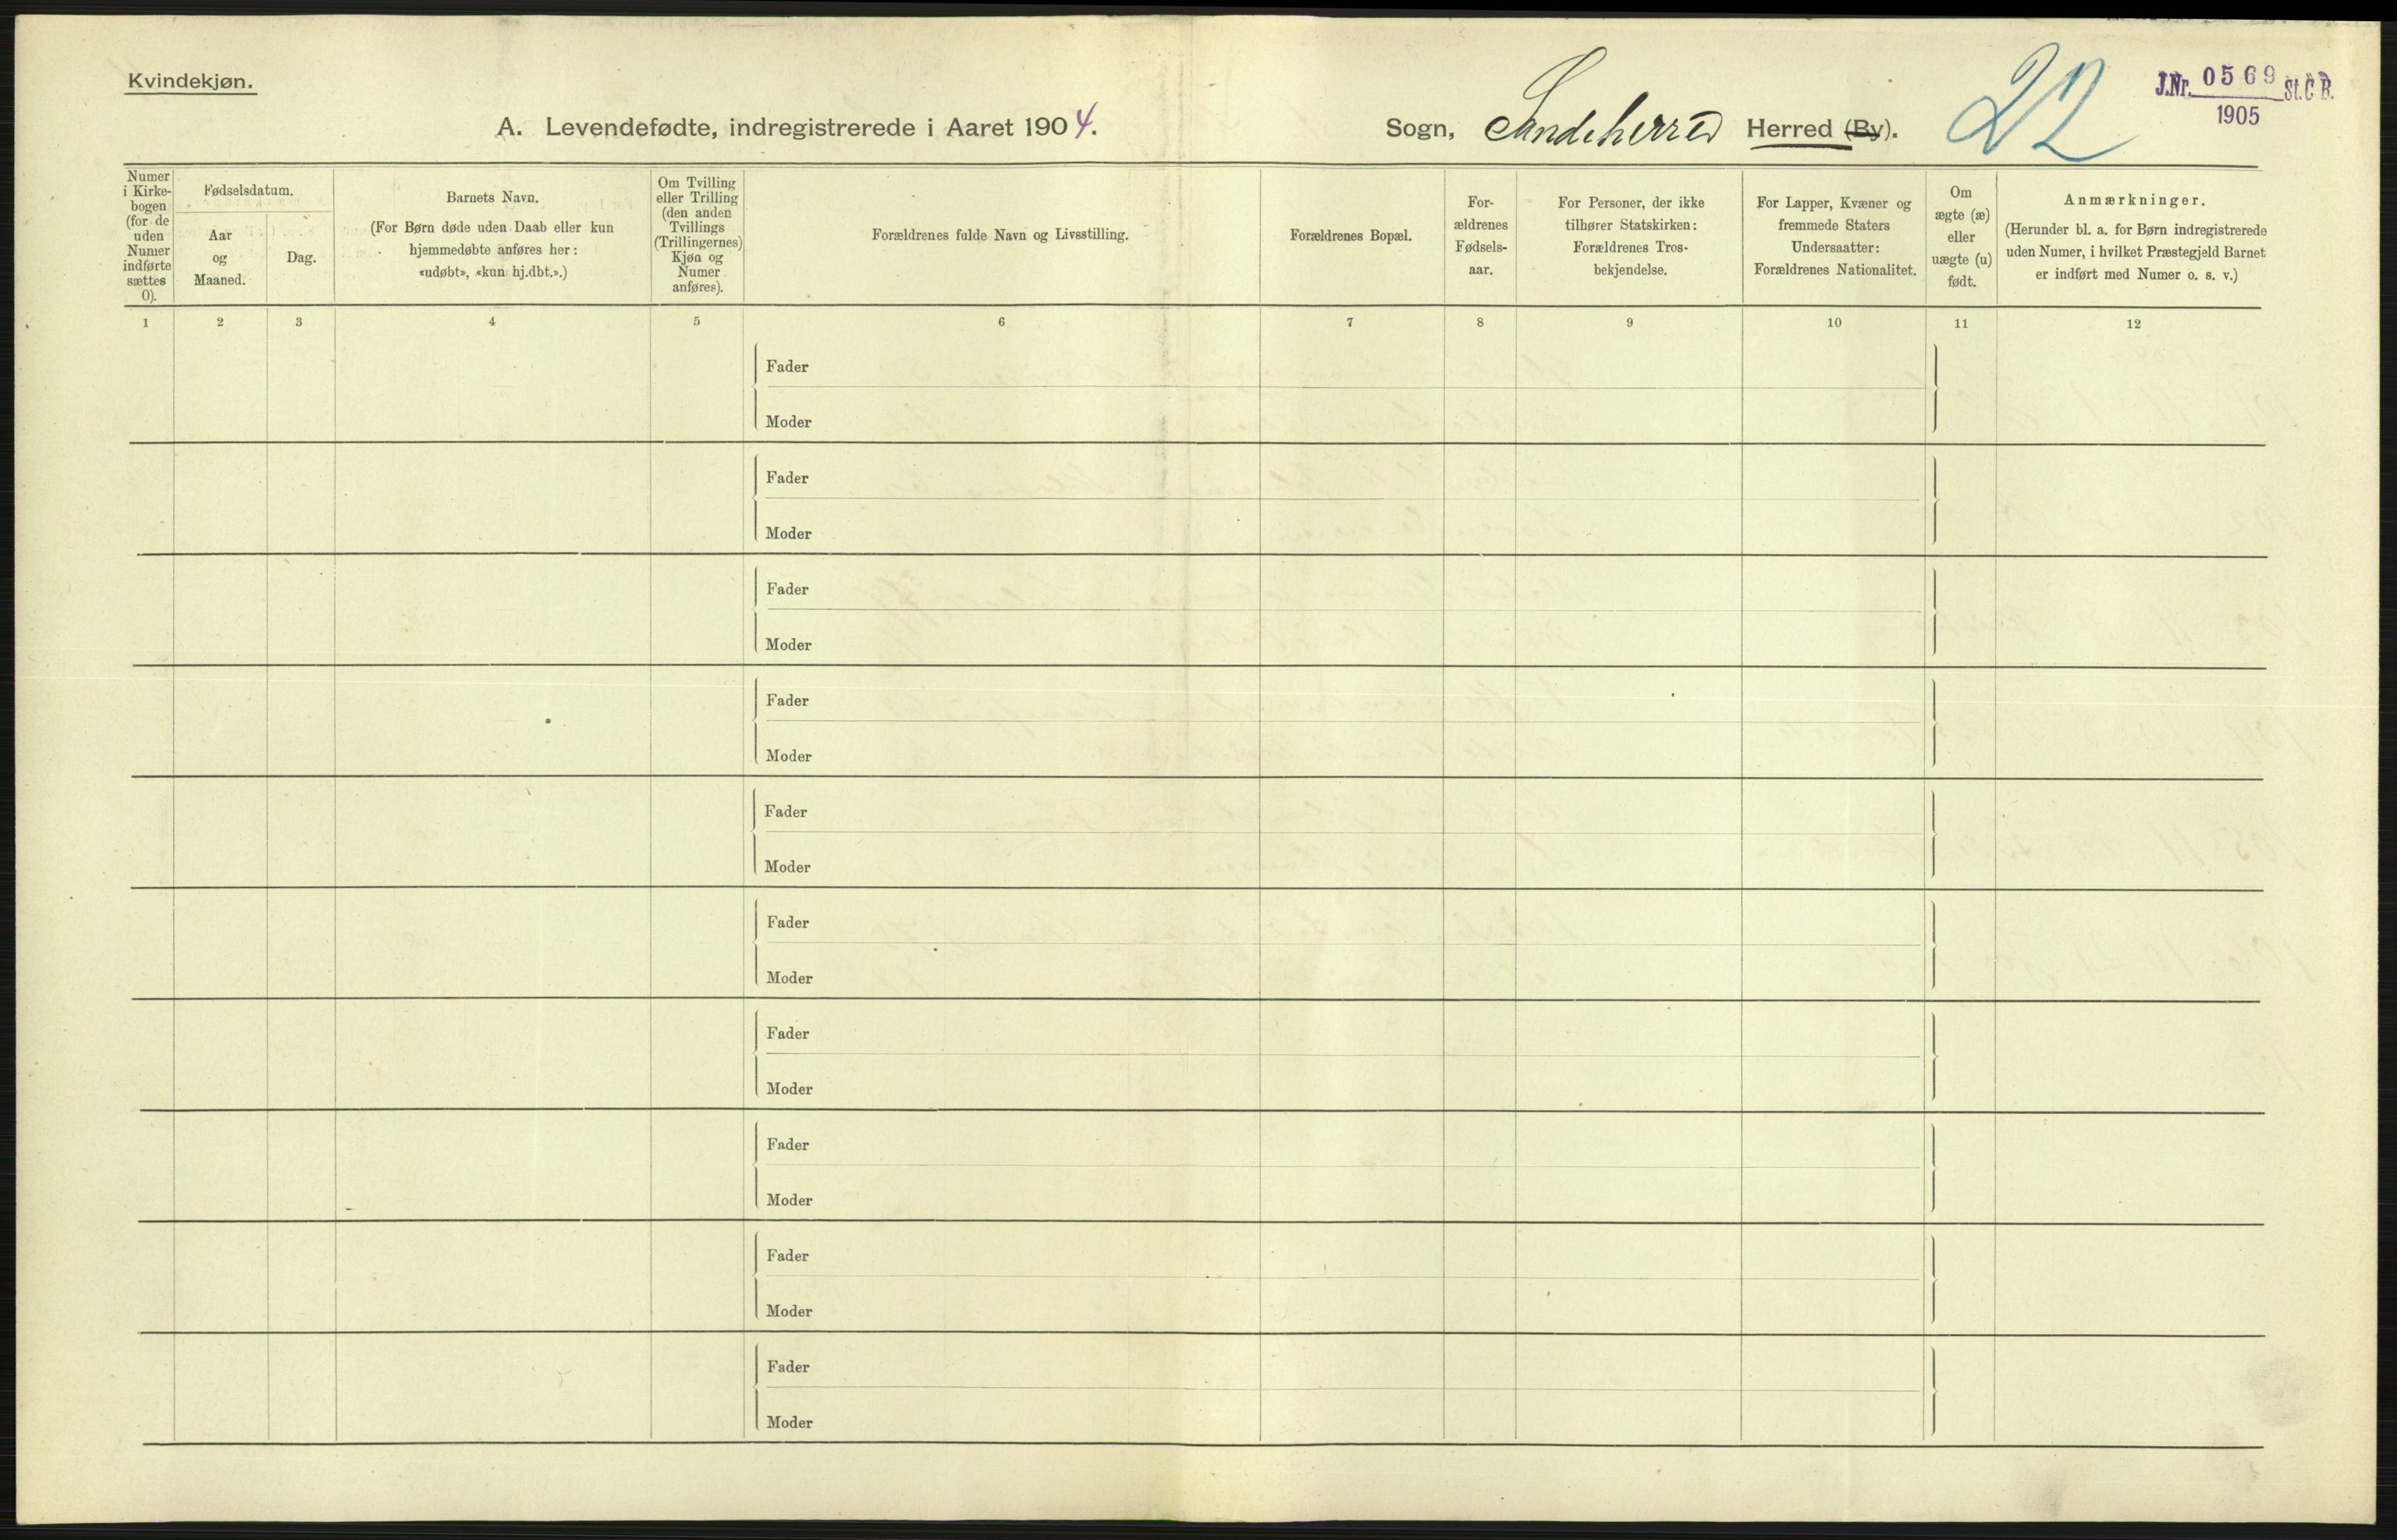 Kvindekjøn.
A. Levendefødte, indregistrerede i Aaret 1904.
Sogn, Sandeherred Herred (By).
22
J.Nr. 0569 St.C.B.
1905
Numer
i Kirke-
bogen
(for de
uden
Numer
indførte
sættes
0).
Fødselsdatum.
Aar
og
Maaned.
Dag.
Barnets Navn.
(For Børn døde uden Daab eller kun
hjemmedøbte anføres her:
«udøbt», «kun hj.dbt.».)
Om Tvilling
eller Trilling
(den anden
Tvillings
(Trillingernes)
Kjøn og
Numer
anføres).
Forældrenes fulde Navn og Livsstilling.
Forældrenes Bopæl.
For-
ældrenes
Fødsels-
aar.
For Personer, der ikke
tilhører Statskirken:
Forældrenes Tros-
bekjendelse.
For Lapper, Kvæner og
fremmede Staters
Undersaatter:
Forældrenes Nationalitet.
Om
ægte (æ)
eller
uægte (u)
født.
Anmærkninger.
(Herunder bl. a. for Børn indregistrerede
uden Numer, i hvilket Præstegjeld Barnet
er indført med Numer o. s. v.)
1 2 3 4 5 6 7 8 9 10 11 12
Fader
Moder
Fader
Moder
Fader
Moder
Fader
Moder
Fader
Moder
Fader
Moder
Fader
Moder
Fader
Moder
Fader
Moder
Fader
Moder